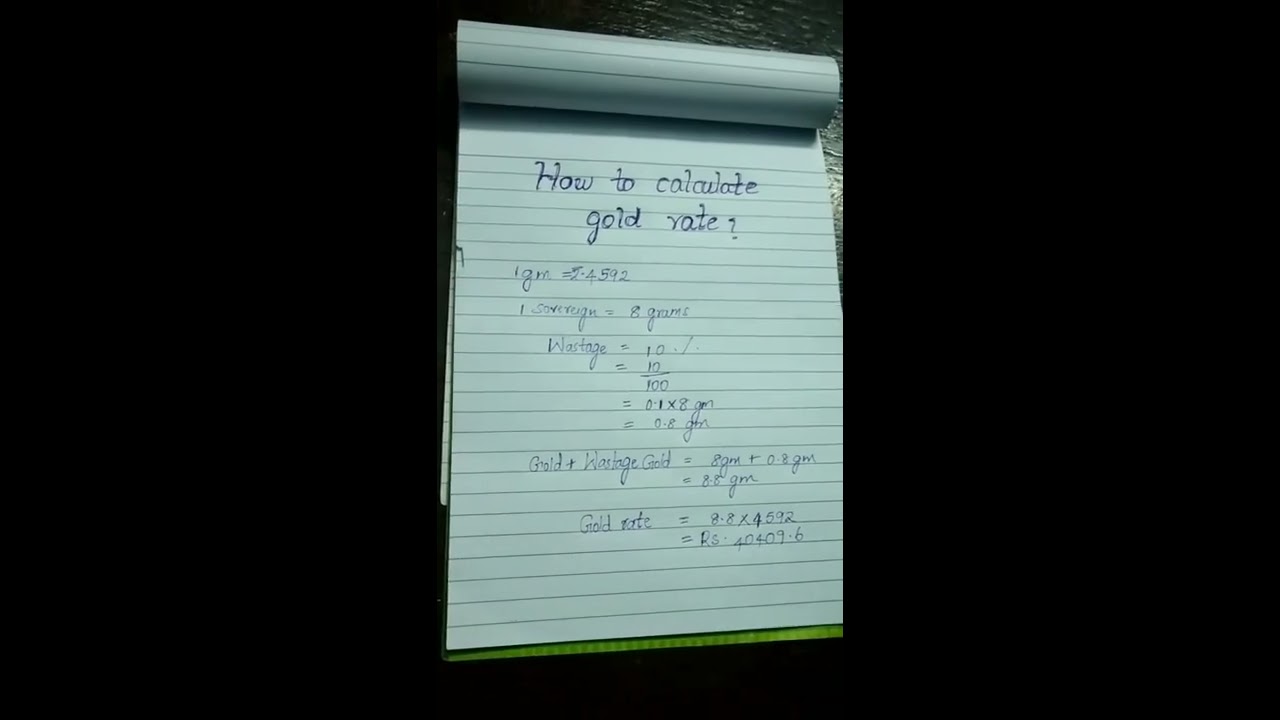 How to calculate
gold rate?
1 gm = ₹.4592
1 Sovereign = 8 grams
Wastage = 10 ./.
= 10
100
= 0.1 x 8 gm
= 0.8 gm
Gold + Wastage Gold = 8gm + 0.8 gm
= 8.8 gm
Gold rate = 8.8 x 4592
= Rs. 40409.6